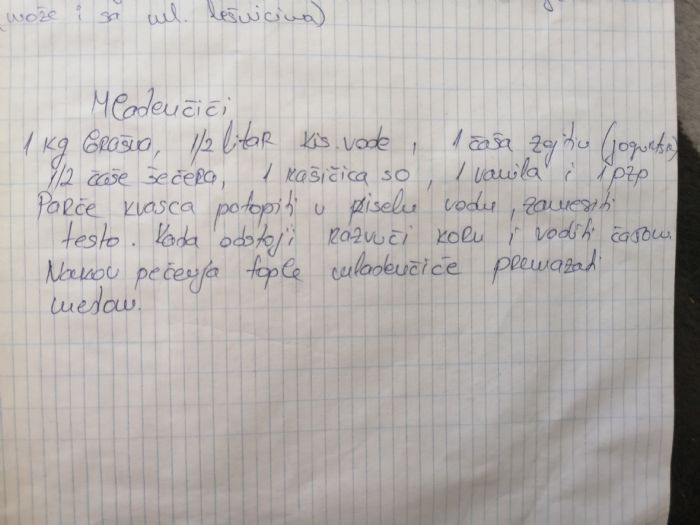 (može i sa ml. lešnicima)
Mladenčići
1 kg brašna, 1/2 litar kis. vode, 1 čaša (jogurta)
1/2 čaše šećera, 1 kašičica so, 1 vanila i 1 pzp
Parče kvasca potopiti u kiselu vodu, zamesiti
testo. Kada odstoji razvući koru i vaditi čašom.
Nakon pečenja tople mladenčiće premazati
medom.